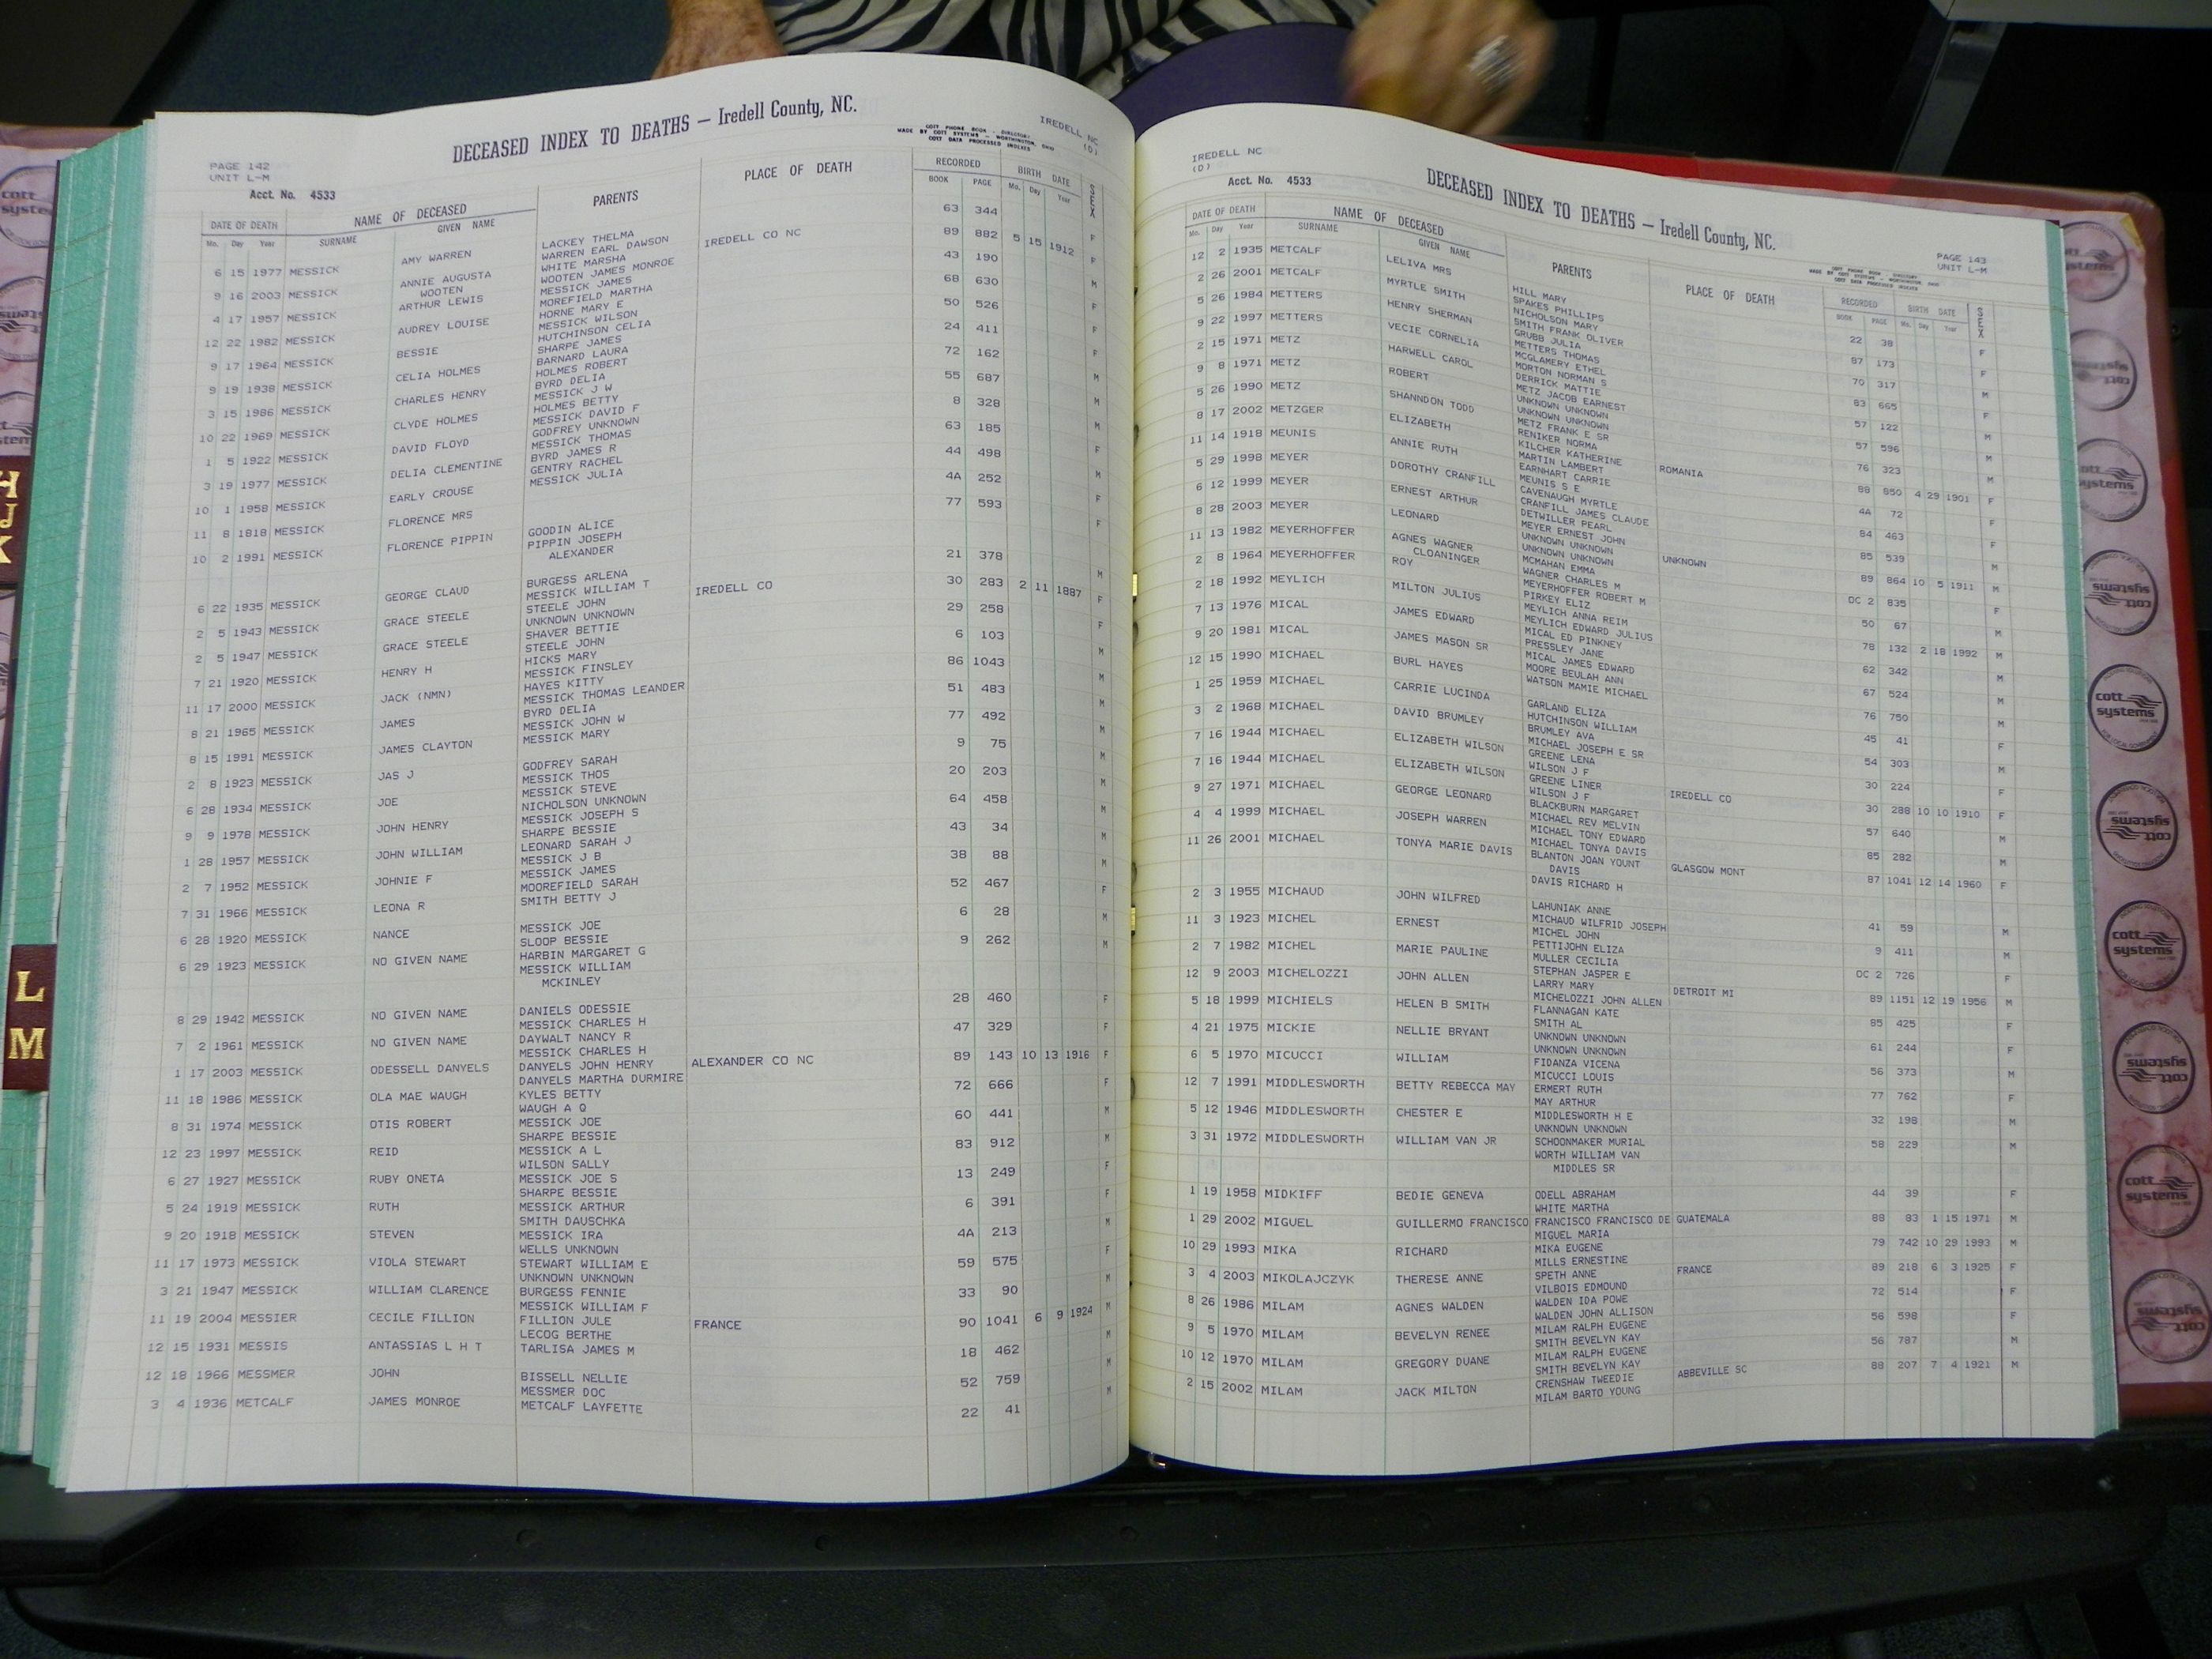 DECEASED INDEX TO DEATHS — Iredell County, NC.
IREDELL NC
(D)
MADE BY COTT SYSTEMS — WORTHINGTON, OHIO
COTT DATA PROCESSED INDEXES
PAGE 142
UNIT L-M
Acct. No. 4533
DATE OF DEATH NAME OF DECEASED PARENTS PLACE OF DEATH RECORDED BIRTH DATE SEX
Mo. Day Year SURNAME GIVEN NAME BOOK PAGE Mo. Day Year
6 15 1977 MESSICK AMY WARREN LACKEY THELMA 63 344 F
WARREN EARL DAWSON
9 16 2003 MESSICK ANNIE AUGUSTA WHITE MARSHA IREDELL CO NC 89 882 5 15 1912 F
WOOTEN WOOTEN JAMES MONROE
4 17 1957 MESSICK ARTHUR LEWIS MESSICK JAMES 43 190 M
MOREFIELD MARTHA
12 22 1982 MESSICK AUDREY LOUISE HORNE MARY E 68 630 F
MESSICK WILSON
9 17 1964 MESSICK BESSIE HUTCHINSON CELIA 50 526 F
SHARPE JAMES
9 19 1938 MESSICK CELIA HOLMES BARNARD LAURA 24 411 F
HOLMES ROBERT
3 15 1986 MESSICK CHARLES HENRY BYRD DELIA 72 162 M
MESSICK J W
10 22 1969 MESSICK CLYDE HOLMES HOLMES BETTY 55 687 M
MESSICK DAVID F
1 5 1922 MESSICK DAVID FLOYD GODFREY UNKNOWN 8 328 M
MESSICK THOMAS
3 19 1977 MESSICK DELIA CLEMENTINE BYRD JAMES R 63 185 F
GENTRY RACHEL
10 1 1958 MESSICK EARLY CROUSE MESSICK JULIA 44 498 M
11 8 1818 MESSICK FLORENCE MRS 4A 252 F
10 2 1991 MESSICK FLORENCE PIPPIN GOODIN ALICE 77 593 F
PIPPIN JOSEPH
ALEXANDER
6 22 1935 MESSICK GEORGE CLAUD BURGESS ARLENA 21 378 M
MESSICK WILLIAM T
2 5 1943 MESSICK GRACE STEELE STEELE JOHN IREDELL CO 30 283 2 11 1887 F
UNKNOWN UNKNOWN
2 5 1947 MESSICK GRACE STEELE SHAVER BETTIE 29 258 F
STEELE JOHN
7 21 1920 MESSICK HENRY H HICKS MARY 6 103 M
MESSICK FINSLEY
11 17 2000 MESSICK JACK (NMN) HAYES KITTY 86 1043 M
MESSICK THOMAS LEANDER
8 21 1965 MESSICK JAMES BYRD DELIA 51 483 M
MESSICK JOHN W
8 15 1991 MESSICK JAMES CLAYTON MESSICK MARY 77 492 M
2 8 1923 MESSICK JAS J GODFREY SARAH 9 75 M
MESSICK THOS
6 28 1934 MESSICK JOE MESSICK STEVE 20 203 M
NICHOLSON UNKNOWN
9 9 1978 MESSICK JOHN HENRY MESSICK JOSEPH S 64 458 M
SHARPE BESSIE
1 28 1957 MESSICK JOHN WILLIAM LEONARD SARAH J 43 34 M
MESSICK J B
2 7 1952 MESSICK JOHNIE F MESSICK JAMES 38 88 M
MOOREFIELD SARAH
7 31 1966 MESSICK LEONA R SMITH BETTY J 52 467 F
6 28 1920 MESSICK NANCE MESSICK JOE 6 28 M
SLOOP BESSIE
6 29 1923 MESSICK NO GIVEN NAME HARBIN MARGARET G 9 262 M
MESSICK WILLIAM
MCKINLEY
8 29 1942 MESSICK NO GIVEN NAME DANIELS ODESSIE 28 460 F
MESSICK CHARLES H
7 2 1961 MESSICK NO GIVEN NAME DAYWALT NANCY R 47 329 F
MESSICK CHARLES H
1 17 2003 MESSICK ODESSELL DANYELS DANYELS JOHN HENRY ALEXANDER CO NC 89 143 10 13 1916 F
DANYELS MARTHA DURMIRE
11 18 1986 MESSICK OLA MAE WAUGH KYLES BETTY 72 666 F
WAUGH A Q
8 31 1974 MESSICK OTIS ROBERT MESSICK JOE 60 441 M
SHARPE BESSIE
12 23 1997 MESSICK REID MESSICK A L 83 912 M
WILSON SALLY
6 27 1927 MESSICK RUBY ONETA MESSICK JOE S 13 249 F
SHARPE BESSIE
5 24 1919 MESSICK RUTH MESSICK ARTHUR 6 391 F
SMITH DAUSCHKA
9 20 1918 MESSICK STEVEN MESSICK IRA 4A 213 M
WELLS UNKNOWN
11 17 1973 MESSICK VIOLA STEWART STEWART WILLIAM E 59 575 F
UNKNOWN UNKNOWN
3 21 1947 MESSICK WILLIAM CLARENCE BURGESS FENNIE 33 90 M
MESSICK WILLIAM F
11 19 2004 MESSIER CECILE FILLION FILLION JULE FRANCE 90 1041 6 9 1924 M
LECOG BERTHE
12 15 1931 MESSIS ANTASSIAS L H T TARLISA JAMES M 18 462 M
12 18 1966 MESSMER JOHN BISSELL NELLIE 52 759 M
MESSMER DOC
3 4 1936 METCALF JAMES MONROE METCALF LAYFETTE 22 41 M
IREDELL NC
(D)
Acct. No. 4533
DECEASED INDEX TO DEATHS — Iredell County, NC.
PAGE 143
UNIT L-M
DATE OF DEATH NAME OF DECEASED PARENTS PLACE OF DEATH RECORDED BIRTH DATE SEX
Mo. Day Year SURNAME GIVEN NAME BOOK PAGE Mo. Day Year
12 2 1935 METCALF LELIVA MRS HILL MARY 22 38 F
SPAKES PHILLIPS
2 26 2001 METCALF MYRTLE SMITH NICHOLSON MARY 87 173 F
SMITH FRANK OLIVER
5 26 1984 METTERS HENRY SHERMAN GRUBB JULIA 70 317 M
METTERS THOMAS
9 22 1997 METTERS VECIE CORNELIA MCGLAMERY ETHEL 83 665 F
MORTON NORMAN S
2 15 1971 METZ HARWELL CAROL DERRICK MATTIE 57 122 M
METZ JACOB EARNEST
9 8 1971 METZ ROBERT UNKNOWN UNKNOWN 57 596 M
UNKNOWN UNKNOWN
5 26 1990 METZ SHANNDON TODD METZ FRANK E SR 76 323 M
RENIKER NORMA
8 17 2002 METZGER ELIZABETH KILCHER KATHERINE ROMANIA 88 850 4 29 1901 F
MARTIN LAMBERT
11 14 1918 MEUNIS ANNIE RUTH EARNHART CARRIE 4A 72 F
MEUNIS S E
5 29 1998 MEYER DOROTHY CRANFILL CAVENAUGH MYRTLE 84 463 F
CRANFILL JAMES CLAUDE
6 12 1999 MEYER ERNEST ARTHUR DETWILLER PEARL 85 539 M
MEYER ERNEST JOHN
8 28 2003 MEYER LEONARD UNKNOWN UNKNOWN UNKNOWN 89 864 10 5 1911 M
UNKNOWN UNKNOWN
11 13 1982 MEYERHOFFER AGNES WAGNER MCMAHAN EMMA DC 2 835 F
CLOANINGER WAGNER CHARLES M
2 8 1964 MEYERHOFFER ROY MEYERHOFFER ROBERT M 50 67 M
PIRKEY ELIZ
2 18 1992 MEYLICH MILTON JULIUS MEYLICH ANNA REIM 78 132 2 18 1992 M
MEYLICH EDWARD JULIUS
7 13 1976 MICAL JAMES EDWARD MICAL ED PINKNEY 62 342 M
PRESSLEY JANE
9 20 1981 MICAL JAMES MASON SR MICAL JAMES EDWARD 67 524 M
MOORE BEULAH ANN
12 15 1990 MICHAEL BURL HAYES WATSON MAMIE MICHAEL 76 750 M
1 25 1959 MICHAEL CARRIE LUCINDA GARLAND ELIZA 45 41 F
HUTCHINSON WILLIAM
3 2 1968 MICHAEL DAVID BRUMLEY BRUMLEY AVA 54 303 M
MICHAEL JOSEPH E SR
7 16 1944 MICHAEL ELIZABETH WILSON GREENE LENA 30 224 F
WILSON J F
7 16 1944 MICHAEL ELIZABETH WILSON GREENE LINER IREDELL CO 30 288 10 10 1910 F
WILSON J F
9 27 1971 MICHAEL GEORGE LEONARD BLACKBURN MARGARET 57 640 M
MICHAEL REV MELVIN
4 4 1999 MICHAEL JOSEPH WARREN MICHAEL TONY EDWARD 85 282 M
MICHAEL TONYA DAVIS
11 26 2001 MICHAEL TONYA MARIE DAVIS BLANTON JOAN YOUNT GLASGOW MONT 87 1041 12 14 1960 F
DAVIS
DAVIS RICHARD H
2 3 1955 MICHAUD JOHN WILFRED LAHUNIAK ANNE 41 59 M
MICHAUD WILFRID JOSEPH
11 3 1923 MICHEL ERNEST MICHEL JOHN 9 411 M
PETTIJOHN ELIZA
2 7 1982 MICHEL MARIE PAULINE MULLER CECILIA DC 2 726 F
STEPHAN JASPER E
12 9 2003 MICHELOZZI JOHN ALLEN LARRY MARY DETROIT MI 89 1151 12 19 1956 M
MICHELOZZI JOHN ALLEN
5 18 1999 MICHIELS HELEN B SMITH FLANNAGAN KATE 85 425 F
SMITH AL
4 21 1975 MICKIE NELLIE BRYANT UNKNOWN UNKNOWN 61 244 F
UNKNOWN UNKNOWN
6 5 1970 MICUCCI WILLIAM FIDANZA VICENA 56 373 M
MICUCCI LOUIS
12 7 1991 MIDDLESWORTH BETTY REBECCA MAY ERMERT RUTH 77 762 F
MAY ARTHUR
5 12 1946 MIDDLESWORTH CHESTER E MIDDLESWORTH H E 32 198 M
UNKNOWN UNKNOWN
3 31 1972 MIDDLESWORTH WILLIAM VAN JR SCHOONMAKER MURIAL 58 229 M
WORTH WILLIAM VAN
MIDDLES SR
1 19 1958 MIDKIFF BEDIE GENEVA ODELL ABRAHAM 44 39 F
WHITE MARTHA
1 29 2002 MIGUEL GUILLERMO FRANCISCO FRANCISCO FRANCISCO DE GUATEMALA 88 83 1 15 1971 M
MIGUEL MARIA
10 29 1993 MIKA RICHARD MIKA EUGENE 79 742 10 29 1993 M
MILLS ERNESTINE
3 4 2003 MIKOLAJCZYK THERESE ANNE SPETH ANNE FRANCE 89 218 6 3 1925 F
VILBOIS EDMOUND
8 26 1986 MILAM AGNES WALDEN WALDEN IDA POWE 72 514 F
WALDEN JOHN ALLISON
9 5 1970 MILAM BEVELYN RENEE MILAM RALPH EUGENE 56 598 F
SMITH BEVELYN KAY
10 12 1970 MILAM GREGORY DUANE MILAM RALPH EUGENE 56 787 M
SMITH BEVELYN KAY
2 15 2002 MILAM JACK MILTON CRENSHAW TWEEDIE ABBEVILLE SC 88 207 7 4 1921 M
MILAM BARTO YOUNG
H
J
K
L
M
cott systems
cott systems
cott systems
cott systems